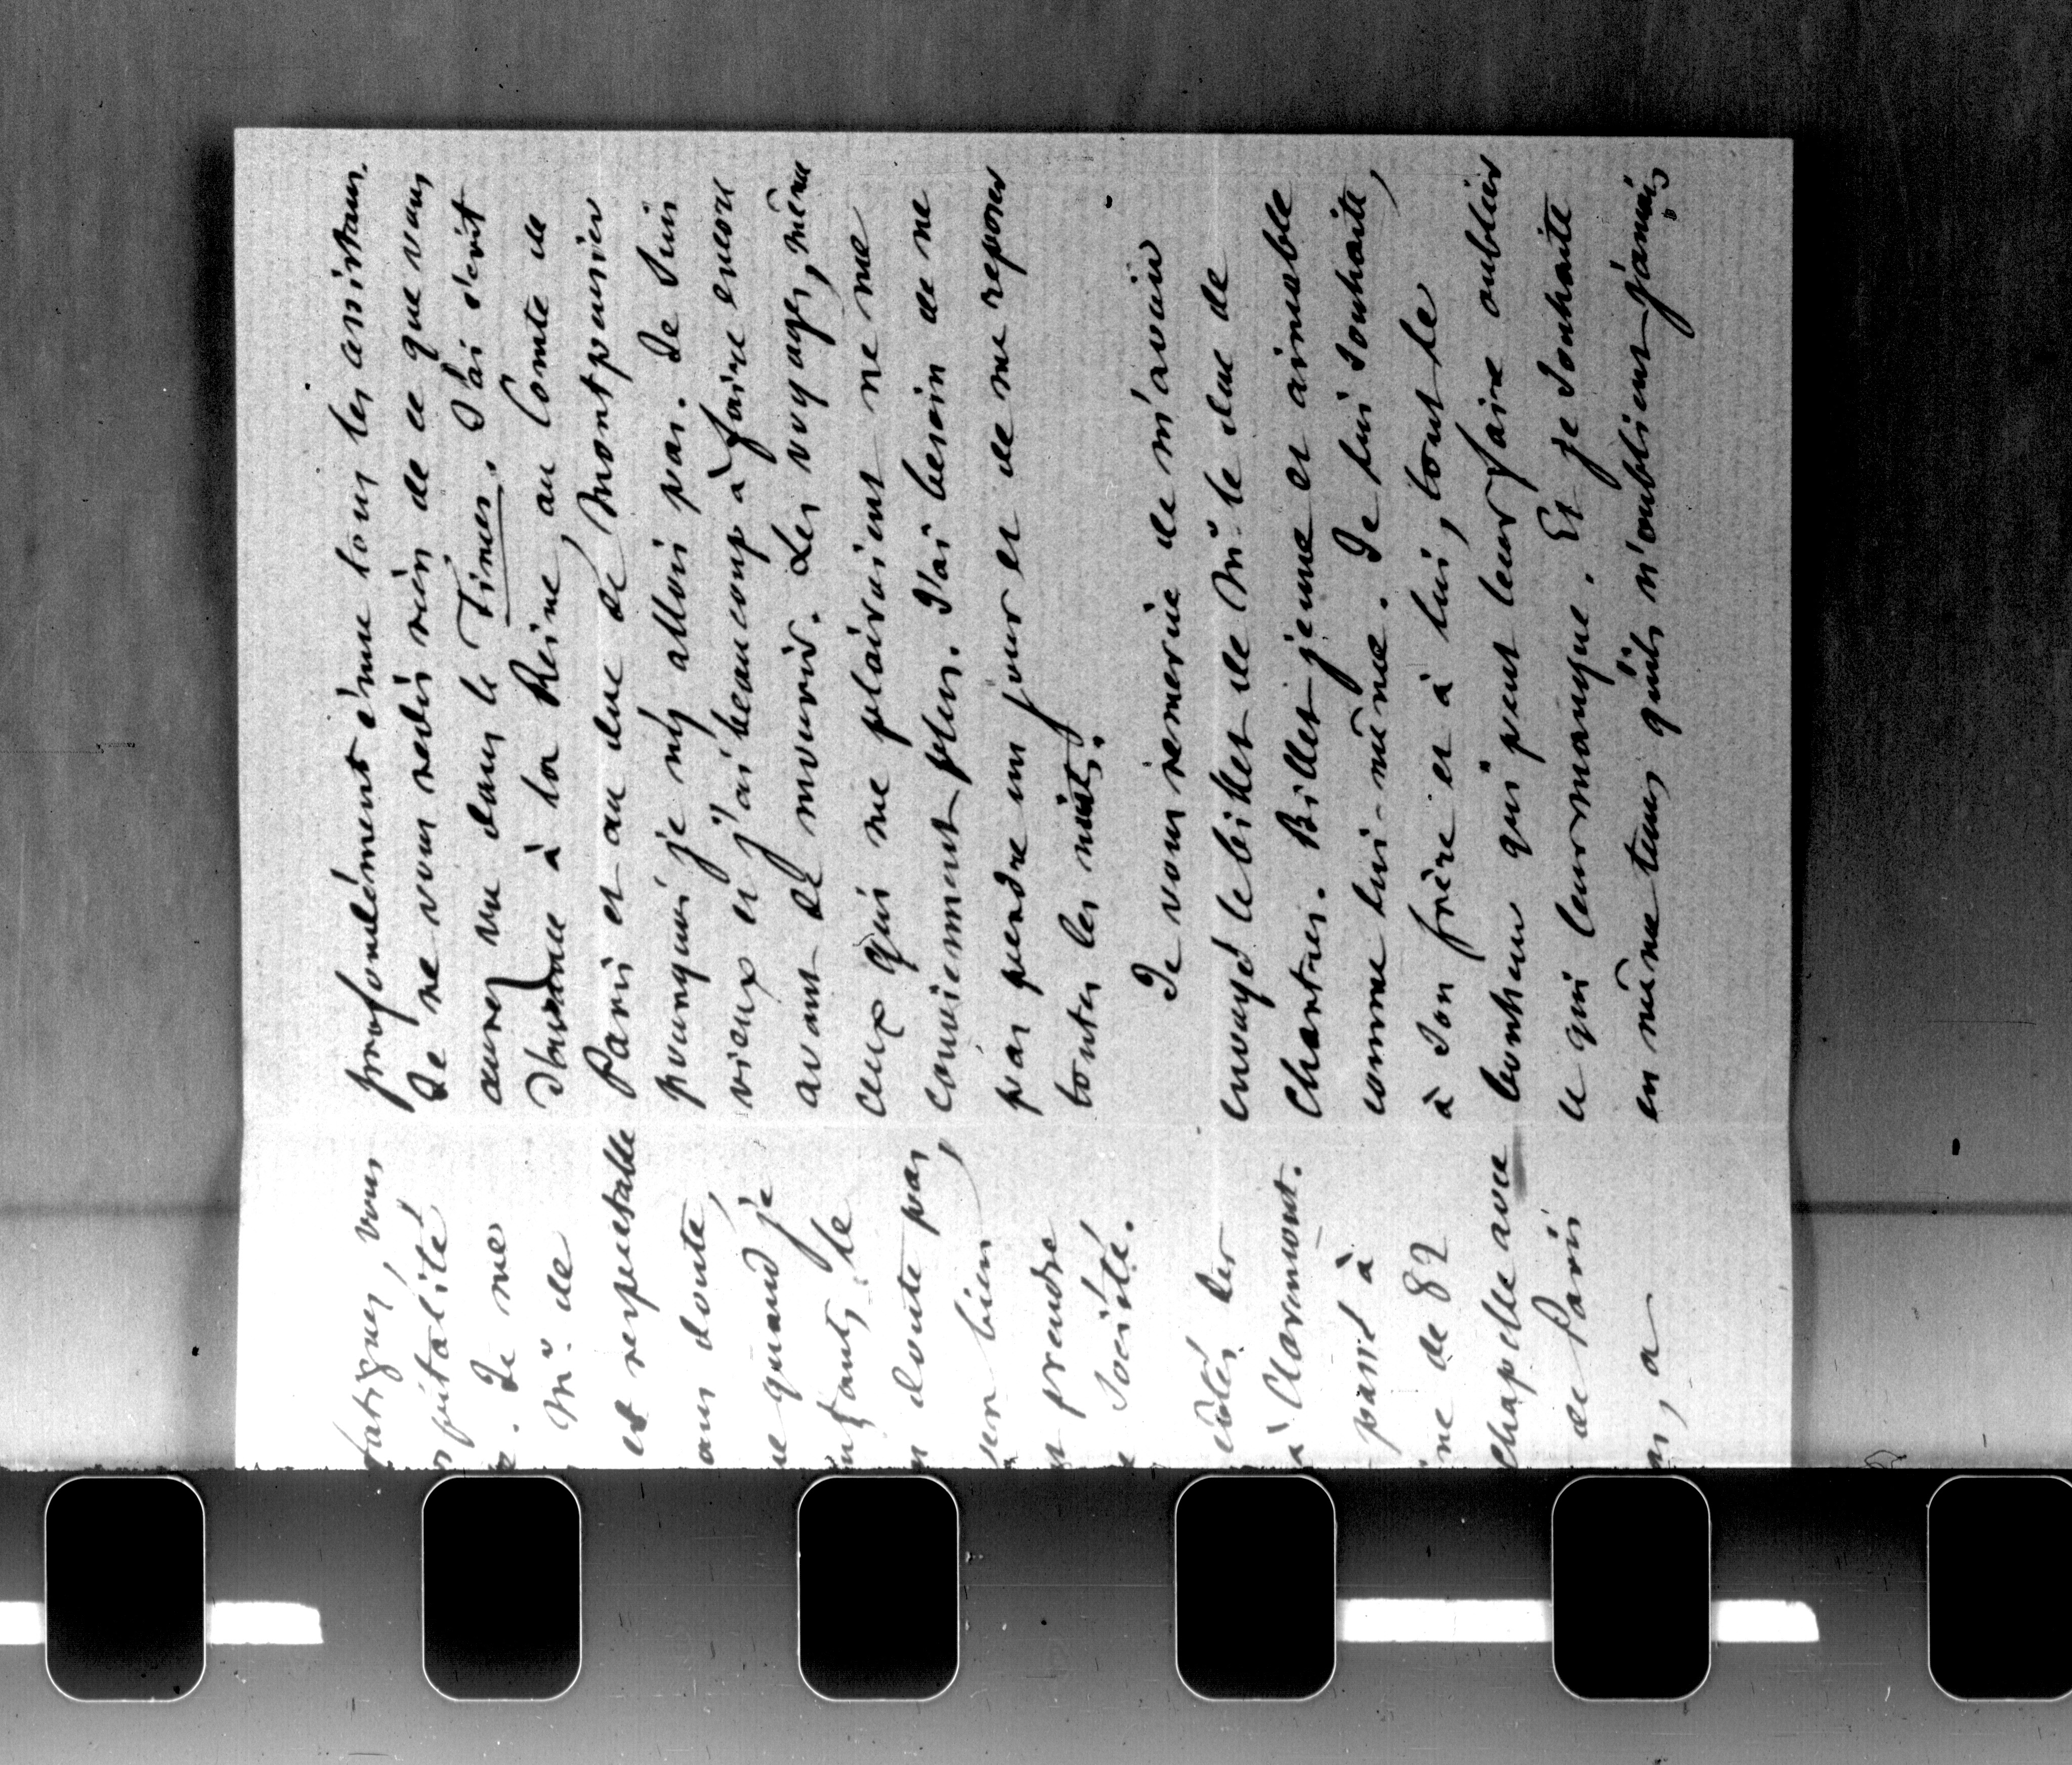 fatigues, vous
spitalité
. Je me
Mr. de
et respectable
ans doute,
ue quand je
enfants, le
doute pas
sen bien,
prendre
Société.
côtés des
à Claremont.
passé à
ine de 82
chapelle avec
de Paris
, a
profondément émue tous les assistans.
Je ne vous redis rien de ce que vous
aurez vu dans le Times. J'ai écrit
d'avance à la Reine, au Comte de
Paris et au duc de Montpensier
pourquoi je n'y allois pas. Je suis
vieux et j'ai beaucoup à faire encore
avant de mourir. Les voyages, même
ceux qui me plairoient ne me
conviennent plus. J'ai besoin de ne
pas perdre un jour et de me reposer
toutes les nuits.
Je vous remercie de m'avoir
envoyé le billet de Mr. le duc de
Chartres. Billet jeune et aimable
comme lui-même. Je lui souhaite,
à son frère et à lui, tout le
bonheur qui peut leur faire oublier
ce qui leur manque. Et je souhaite
en même tems qu'ils n'oublient jamais